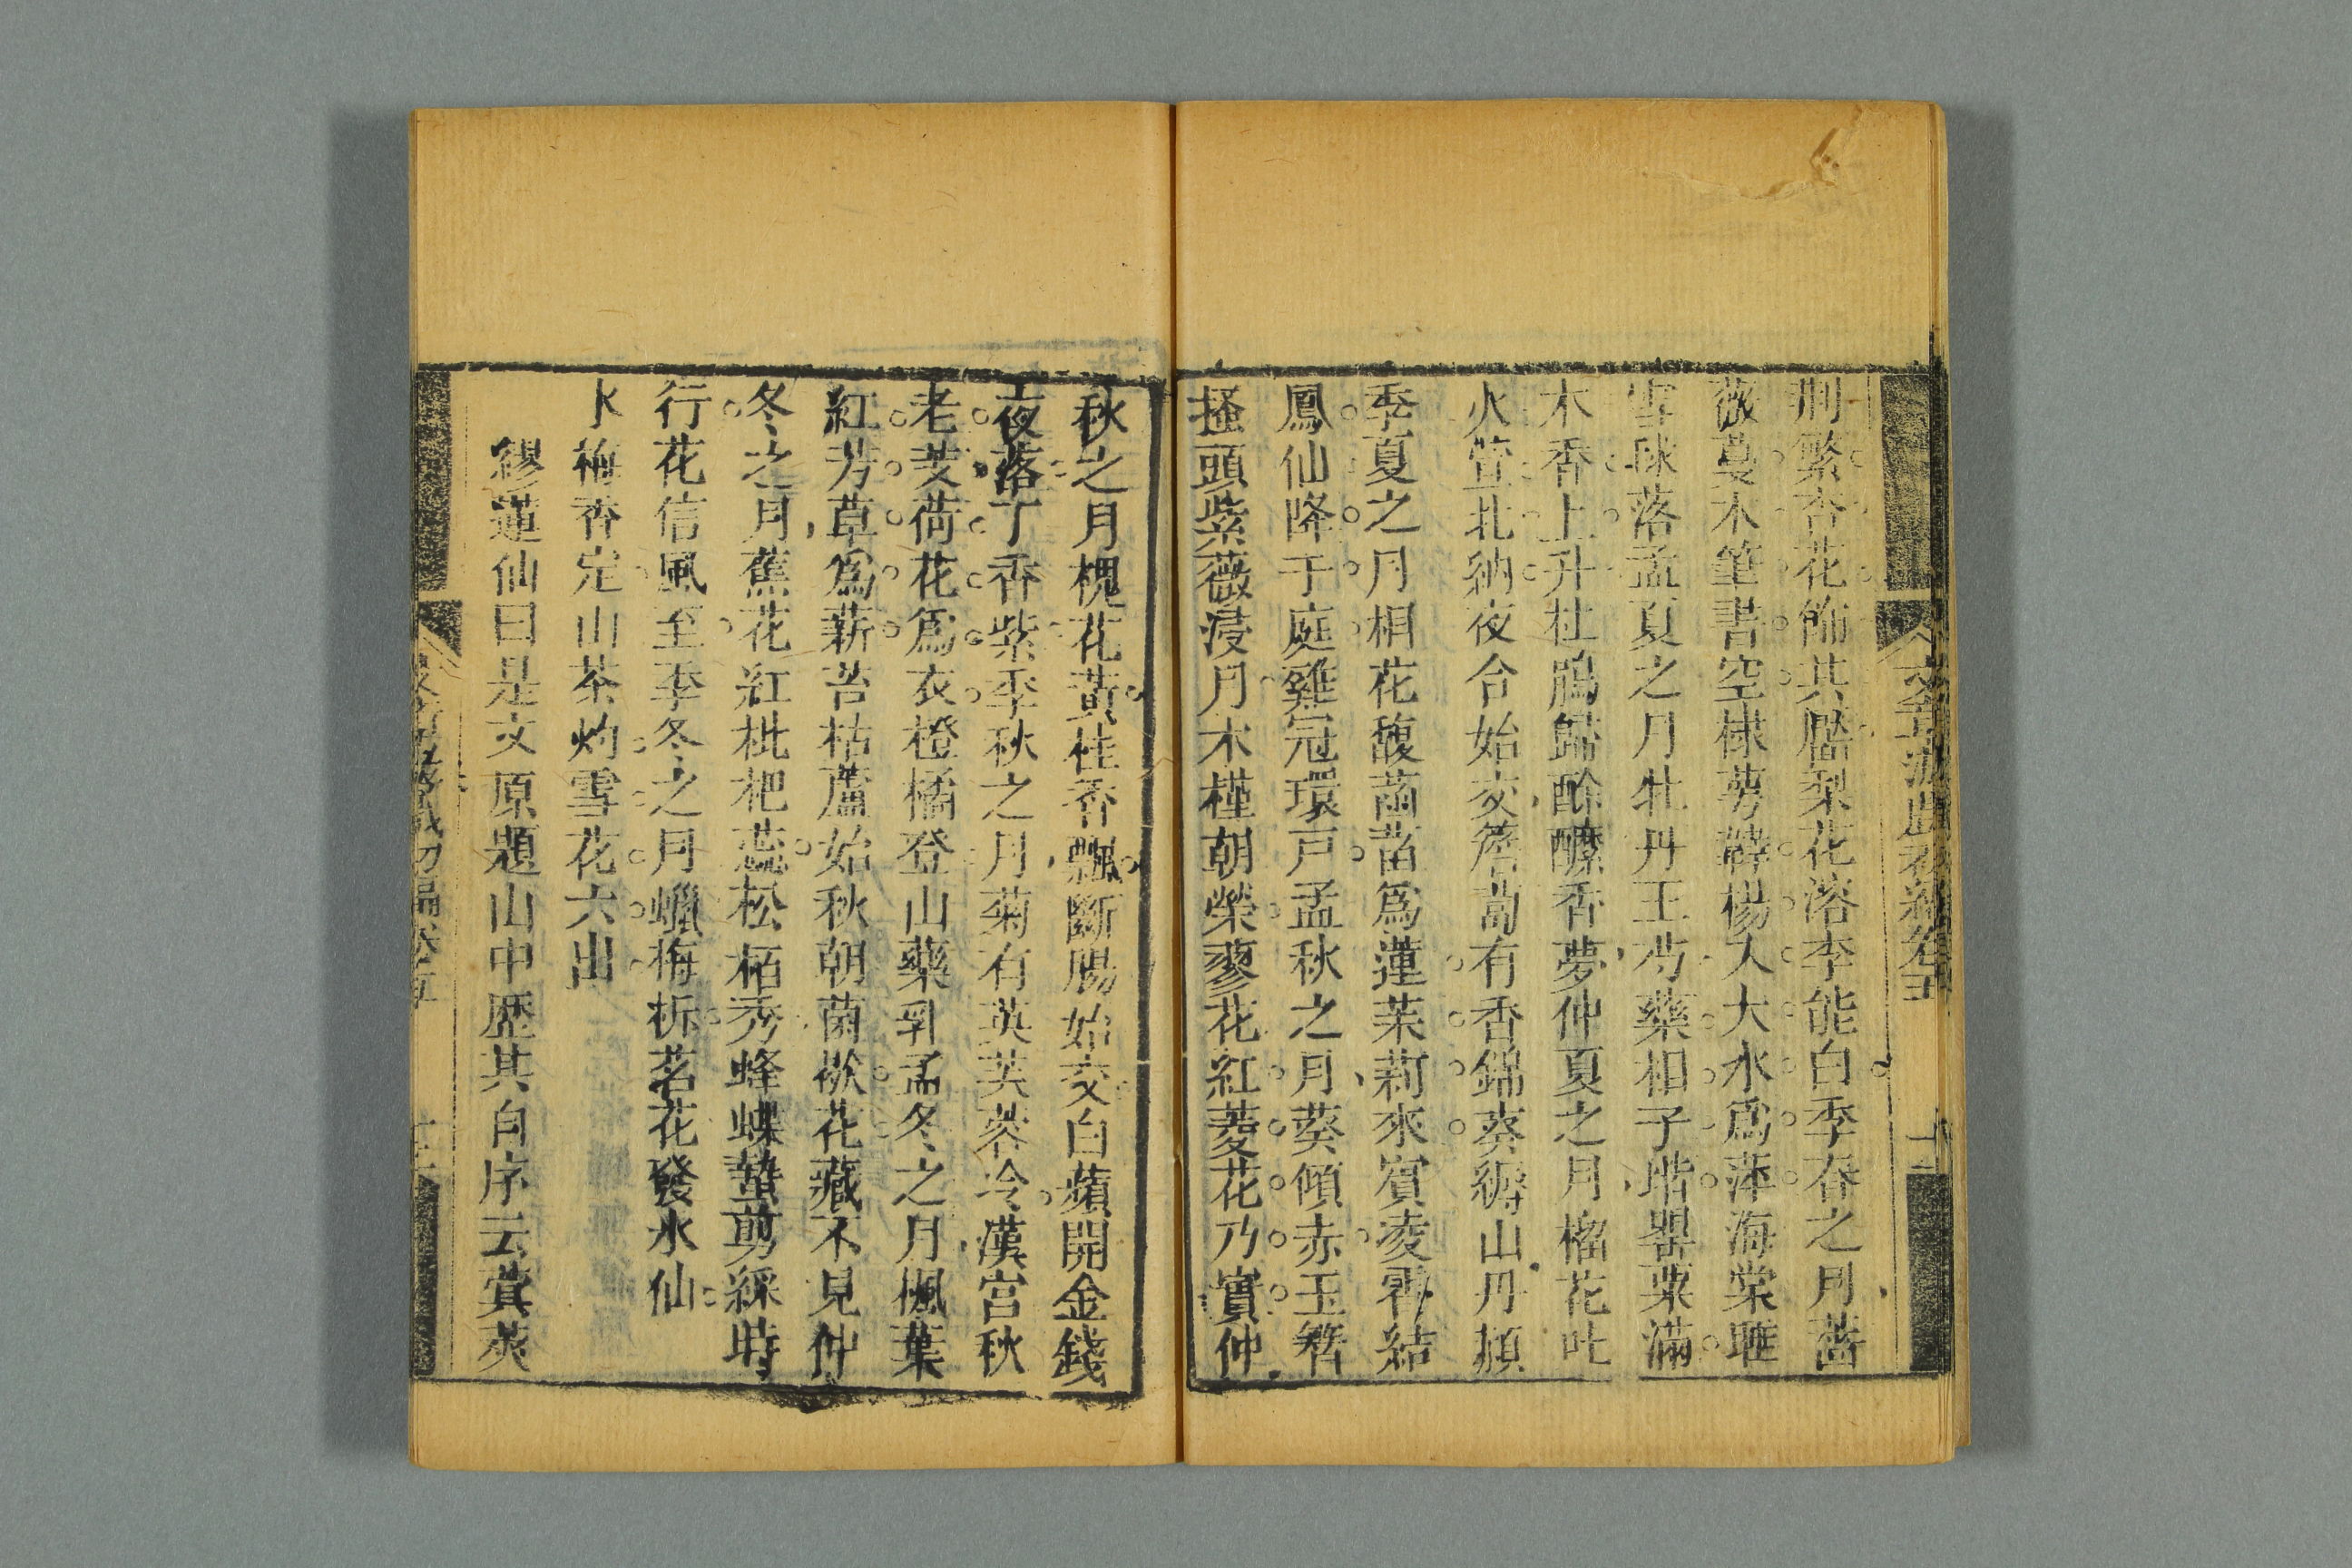 荆繁杏花飾其靨梨花溶李能白季春之月薔
薇蔓木筆書空棣萼韡楊入大水爲萍海棠睡
雪毬落孟夏之月牡丹王芍藥相于堦罌粟滿
木香上升杜鵑歸酴醾香夢仲夏之月榴花吐
火萱北納夜合始交簷蔔有香錦葵縟山丹頳
季夏之月桐花馥菡萏爲蓮茉莉來賓凌霄結
鳳仙降于庭雞冠環戸孟秋之月葵傾赤玉簪
搔頭紫薇浸月木槿朝榮蓼花紅菱花乃實仲
秋之月槐花黄桂香飄斷腸始交白蘋開金錢
夜落丁香紫季秋之月菊有英芙蓉冷漢宮秋
老芰荷花爲衣橙橘登山藥乳孟冬之月楓葉
紅芳草爲薪苔枯蘆始秋朝菌歛花藏不見仲
冬之月蕉花紅枇杷蕊松栢秀蜂蝶蟄剪綵時
行花信風至季冬之月蠟梅拆茗花發水仙
梅香定山茶灼雪花六出
繆蓮仙曰是文原題山中歷其自序云蓂莢